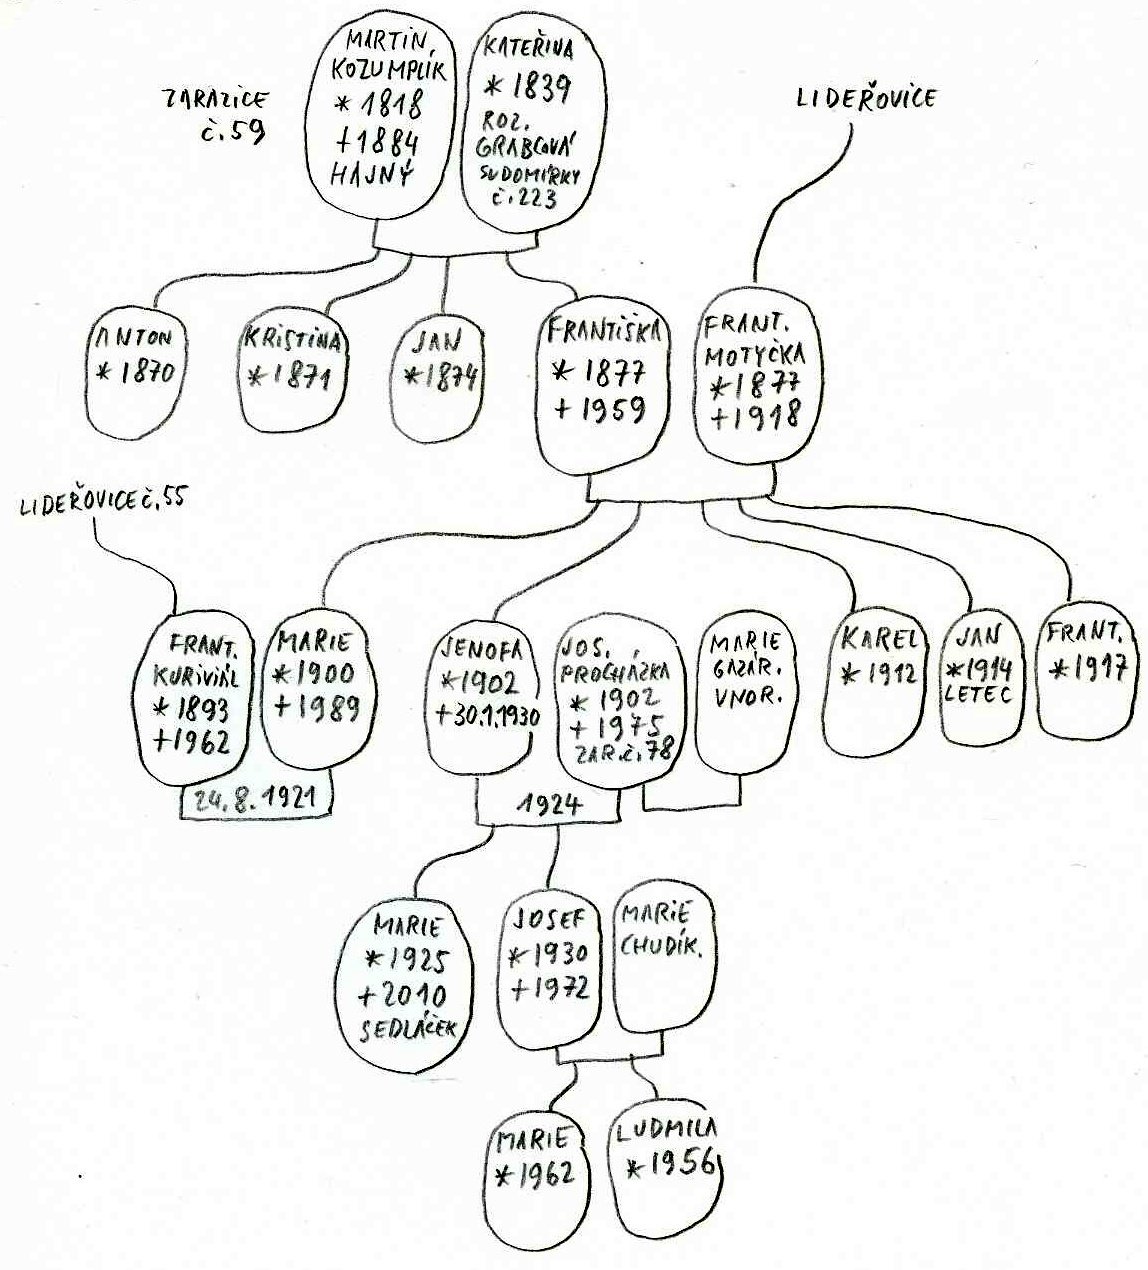 MARTIN
KOZUMPLÍK
* 1818
+1884
HAJNÝ
KATEŘINA
* 1839
ROZ.
GRABCOVÁ
SUDOMÍRKY
č.223
ZARAZICE
č.59
LIDEŘOVICE
ANTON
* 1870
KRISTINA
*1871
JAN
*1874
FRANTIŠKA
* 1877
+ 1959
FRANT.
MOTYČKA
*1877
+1918
LIDEŘOVICE č.55
FRANT.
KURIVIÁL
* 1893
+1962
MARIE
*1900
+1989
24.8.1921
JENOFA
*1902
+30.1.1930
JOS.
PROCHÁZKA
* 1902
+ 1975
ZAR.č.78
1924
MARIE
GAZÁR.
VNOR.
KAREL
*1912
JAN
*1914
LETEC
FRANT.
*1917
MARIE
*1925
+2010
SEDLÁČEK
JOSEF
*1930
+1972
MARIE
CHUDÍK.
MARIE
*1962
LUDMILA
*1956